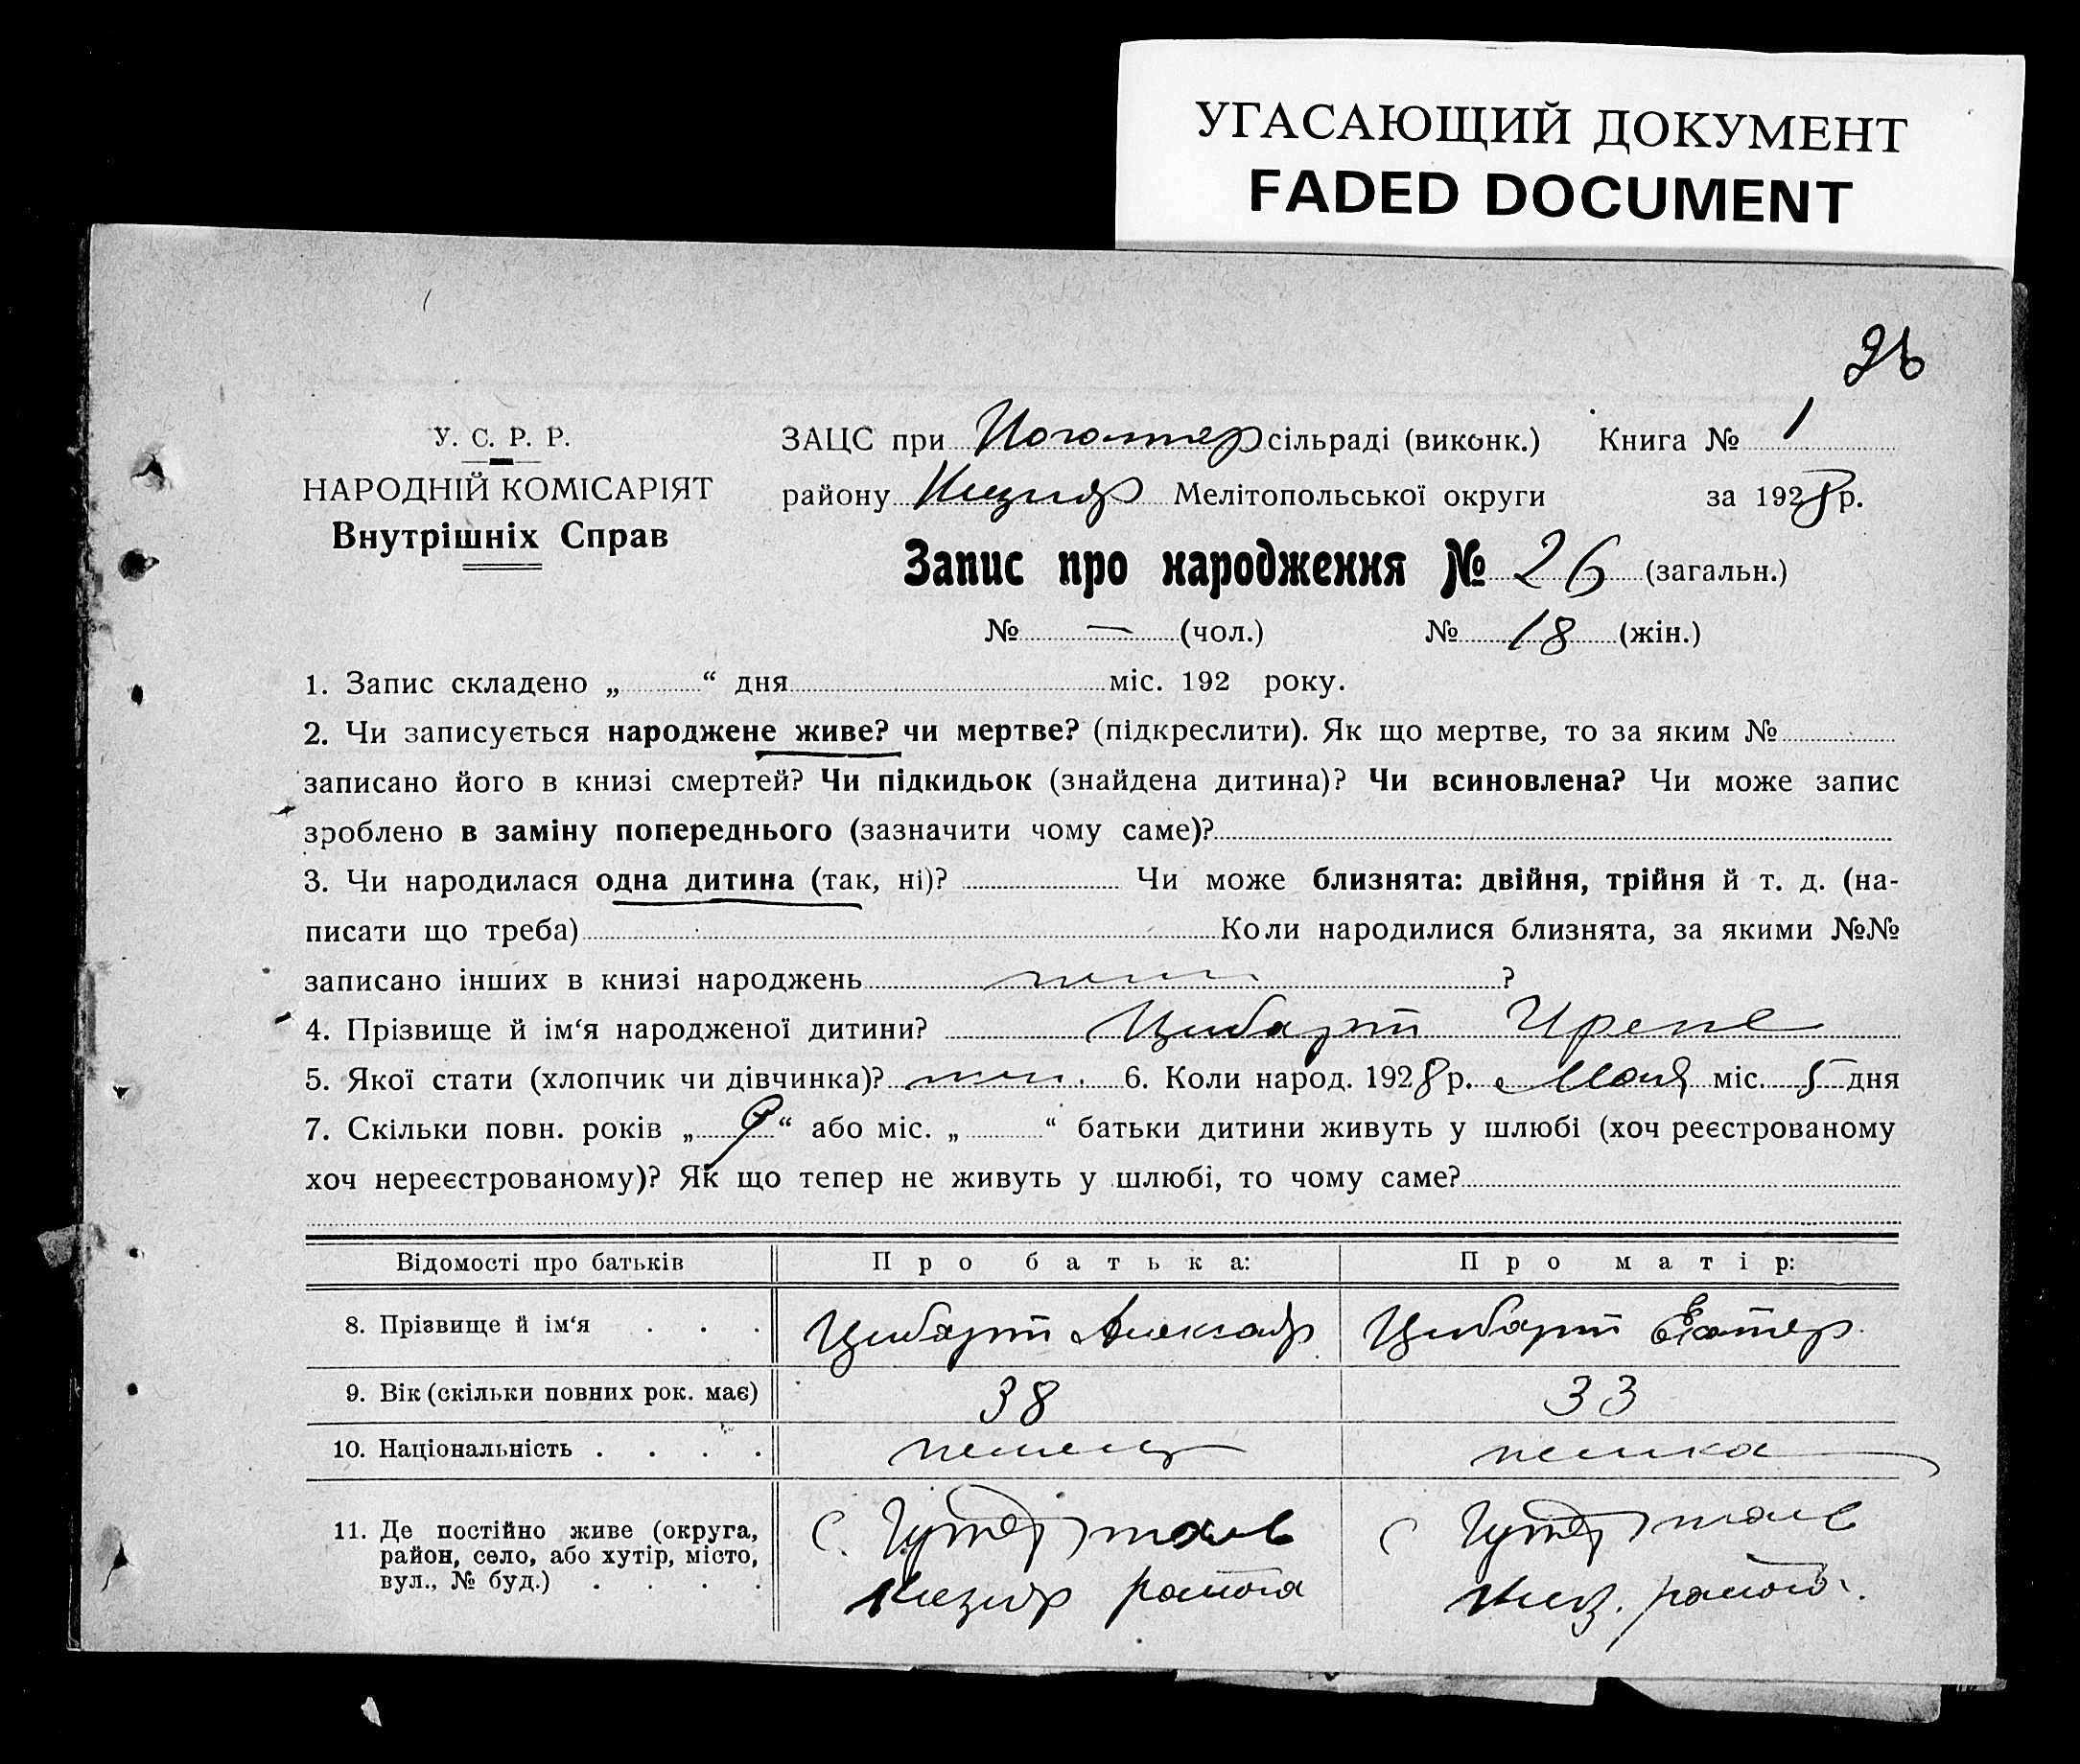 УГАСАЮЩИЙ ДОКУМЕНТ
FADED DOCUMENT
26
У. С. Р. Р.
НАРОДНІЙ КОМІСАРІЯТ
Внутрішніх Справ
ЗАЦС при сільраді (виконк.) Книга № 1
району Мелітопольської округи за 1928 р.
Запис про народження № 26 (загальн.)
№ — (чол.) № 18 (жін.)
1. Запис складено „ “ дня міс. 192 року.
2. Чи записується народжене живе? чи мертве? (підкреслити). Як що мертве, то за яким №
записано його в книзі смертей? Чи підкидьок (знайдена дитина)? Чи всиновлена? Чи може запис
зроблено в заміну попереднього (зазначити чому саме)?
3. Чи народилася одна дитина (так, ні)? Чи може близнята: двійня, трійня й т. д. (на-
писати що треба) Коли народилися близнята, за якими №№
записано інших в книзі народжень ?
4. Прізвище й ім‘я народженої дитини? Цибарт Ирене
5. Якої стати (хлопчик чи дівчинка)? 6. Коли народ. 1928 р. Мая міс. 5 дня
7. Скільки повн. років „ 9 “ або міс. „ “ батьки дитини живуть у шлюбі (хоч реєстрованому
хоч нереєстрованому)? Як що тепер не живуть у шлюбі, то чому саме?
Відомості про батьків Про батька: Про матір:
8. Прізвище й ім‘я . . . Цибарт Александр Цибарт Екатер.
9. Вік (скільки повних рок. має) 38 33
10. Національність . . . . немец немка
11. Де постійно живе (округа,
район, село, або хутір, місто,
вул., № буд.) . . . .
с. Гутерталь
района
с Гутерталь
район.